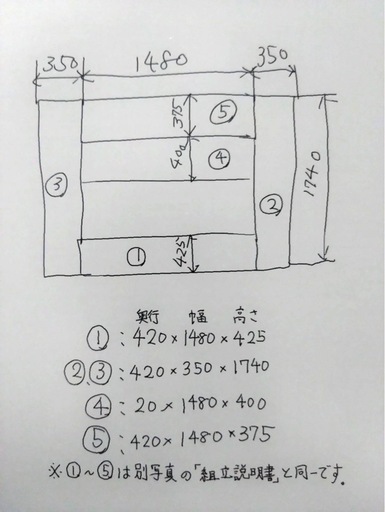 350 1480 350
375 ⑤
400 ④
③ ② 1740
① 425
奥行 幅 高さ
①:420×1480×425
②,③:420×350×1740
④:20×1480×400
⑤:420×1480×375
※①~⑤は別写真の「組立説明書」と同一です.